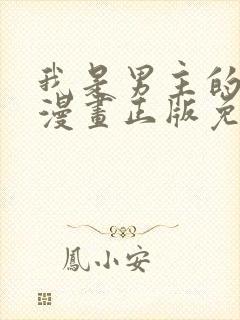 我是男主的
漫畫正版免
鳳小安